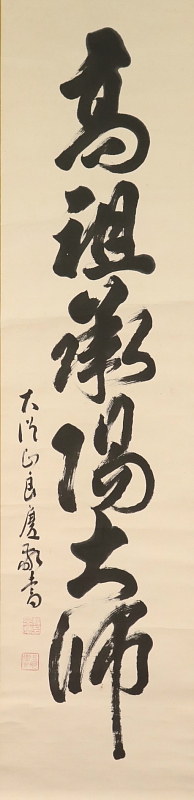 高祖承陽大師
大徹山良慶敬書